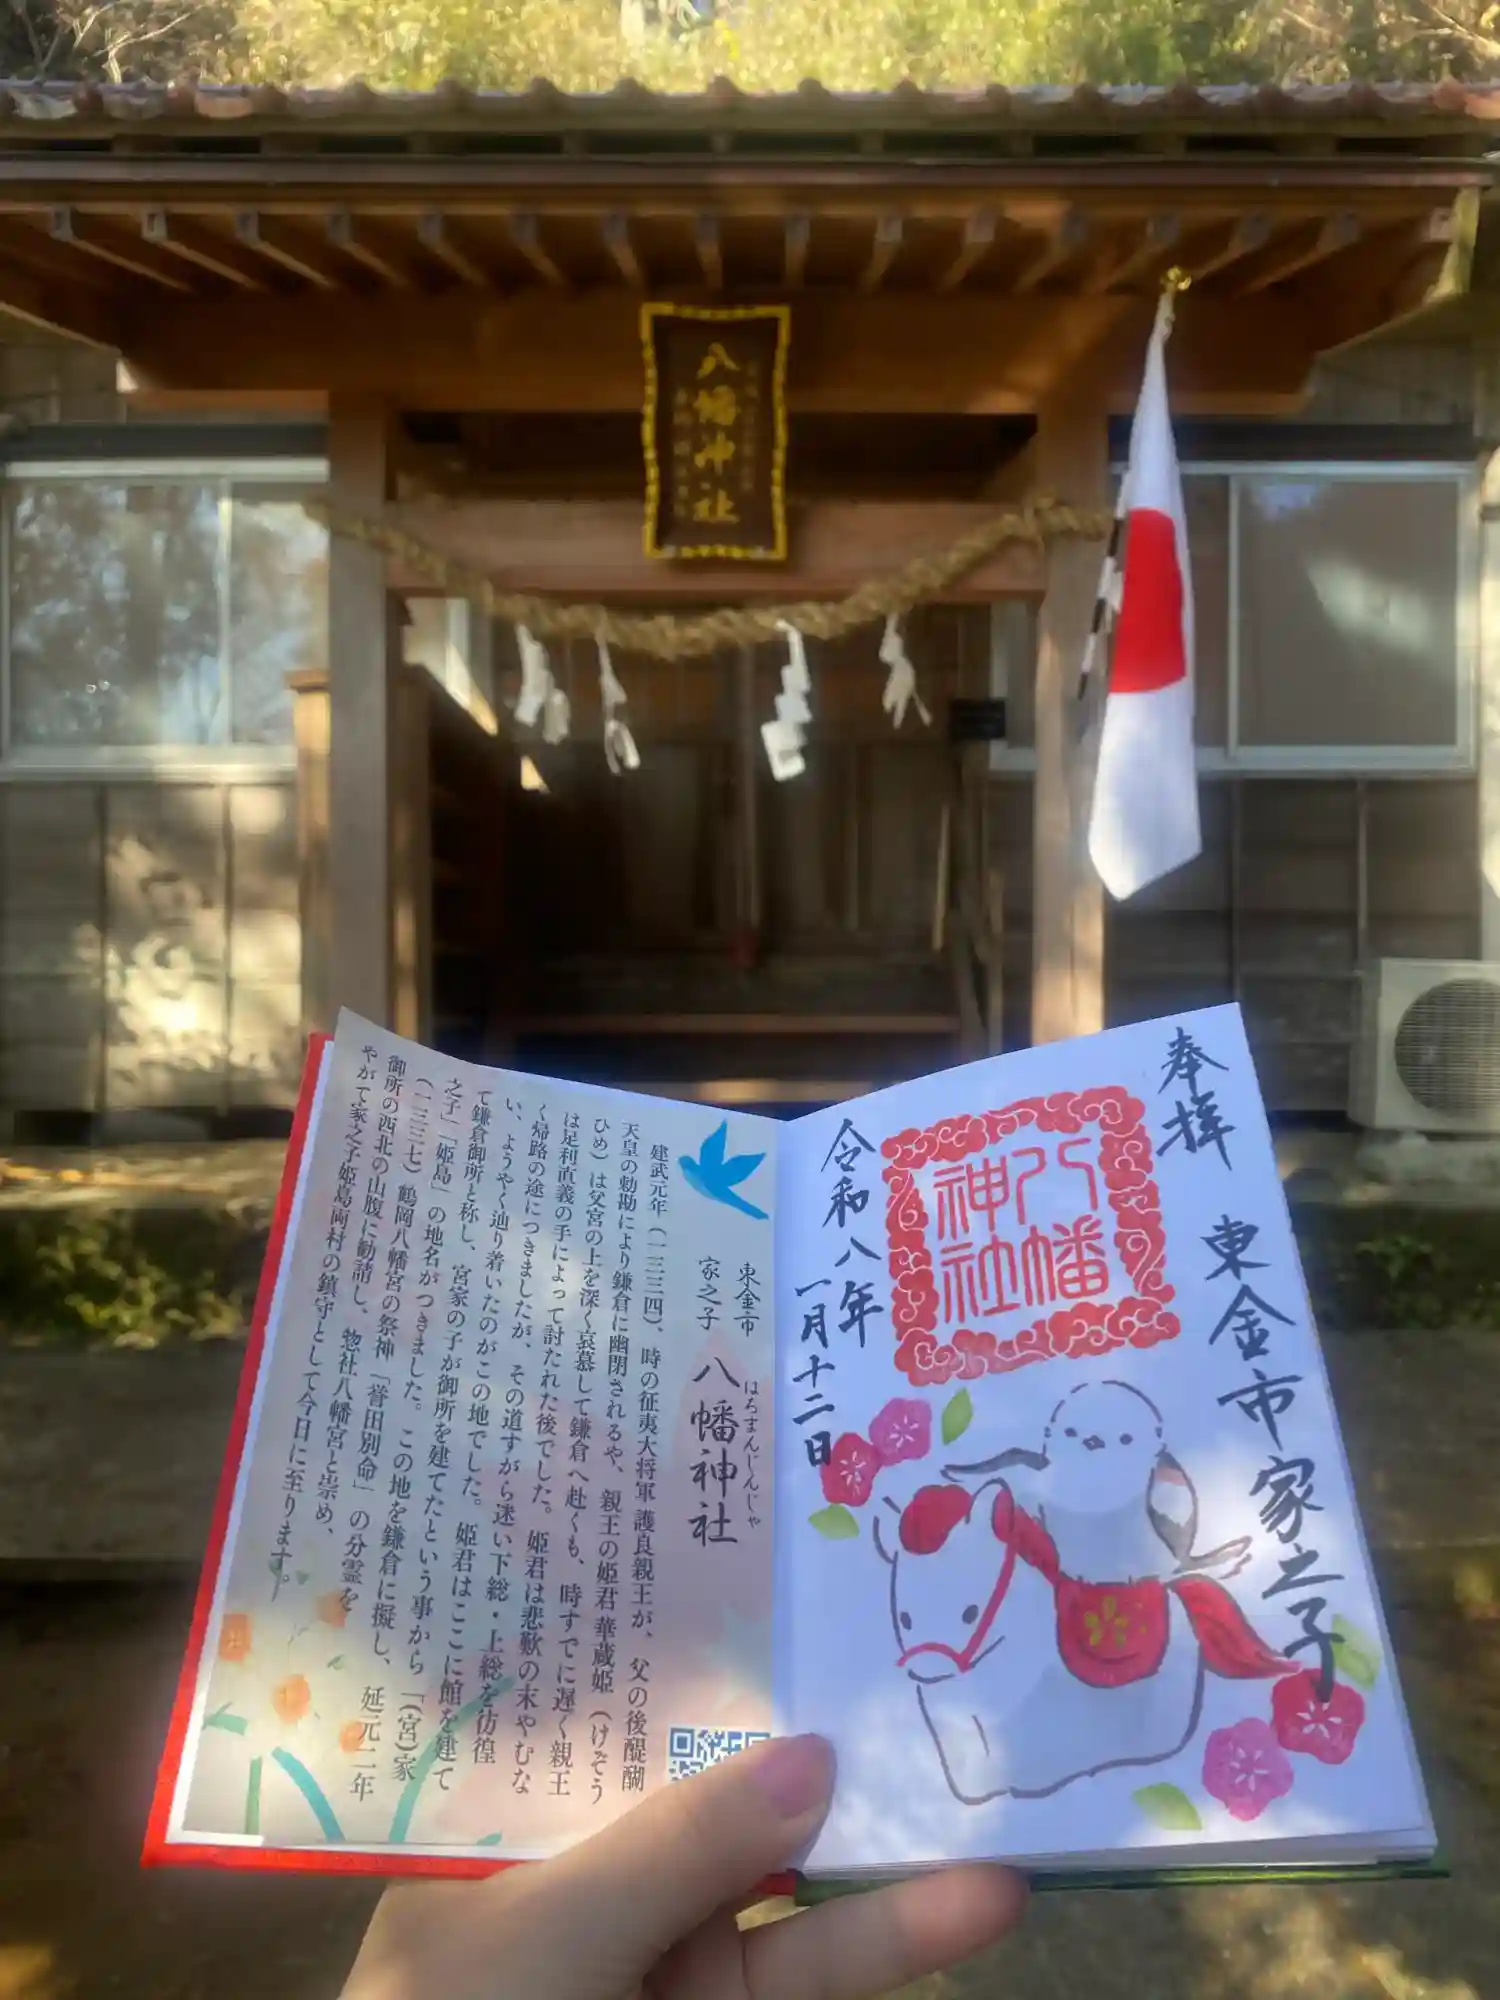 八幡神社
奉拝
東金市家之子
八幡
神社
令和八年
一月十二日
東金市
家之子
八幡神社
はちまんじんじゃ
建武元年(一三三四)、時の征夷大将軍 護良親王が、父の後醍醐
天皇の勅勘により鎌倉に幽閉されるや、親王の姫君 華蔵姫(けぞう
ひめ)は父宮の上を深く哀慕して鎌倉へ赴くも、時すでに遅く親王
は足利直義の手によって討たれた後でした。姫君は悲歎の末やむな
く帰路の途につきましたが、その道すがら迷い下総・上総を彷徨
い、ようやく辿り着いたのがこの地でした。姫君はここに館を建て
て鎌倉御所と称し、宮家の子が御所を建てたという事から「(宮)家
之子」「姫島」の地名がつきました。この地を鎌倉に擬し、延元二年
(一三三七)鶴岡八幡宮の祭神「誉田別命」の分霊を
御所の西北の山腹に勧請し、惣社八幡宮と崇め、
やがて家之子姫島両村の鎮守として今日に至ります。